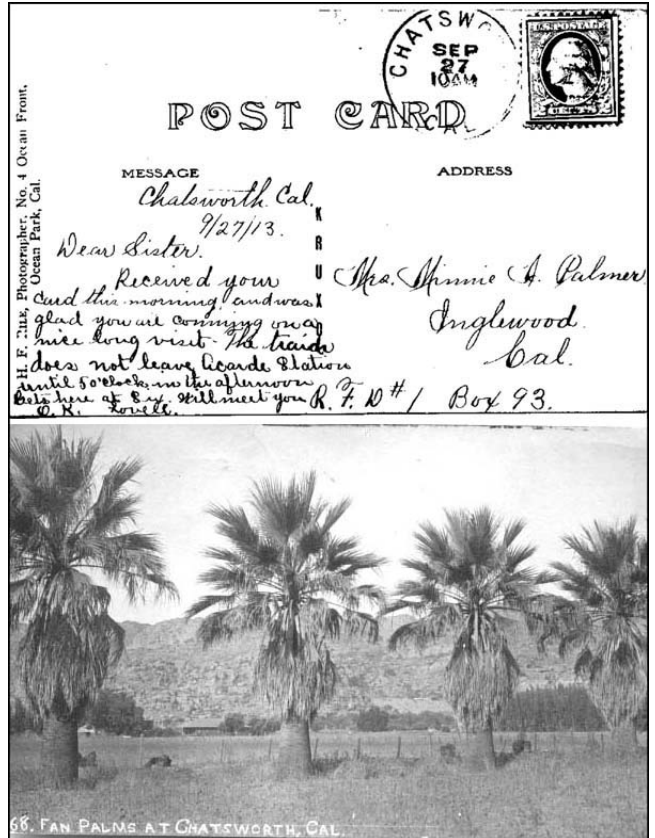 CHATSWO
SEP
27
10AM
CAL.
U.S. POSTAGE
POST CARD
H. F. Photographer, No. 4 Ocean Front,
Ocean Park, Cal.
MESSAGE
Chatsworth Cal.
9/27/13.
Dear Sister.
Received your
card this morning and was
glad you are comming on a
nice long visit. The train
does not leave Station
until 5 o'clock in the afternoon
Gets here at Six. Will meet you
O.K. Lovell.
KRUX
ADDRESS
Mrs. Minnie A. Palmer
Inglewood.
Cal.
R. F. D # 1 Box 93.
68. FAN PALMS AT CHATSWORTH, CAL.